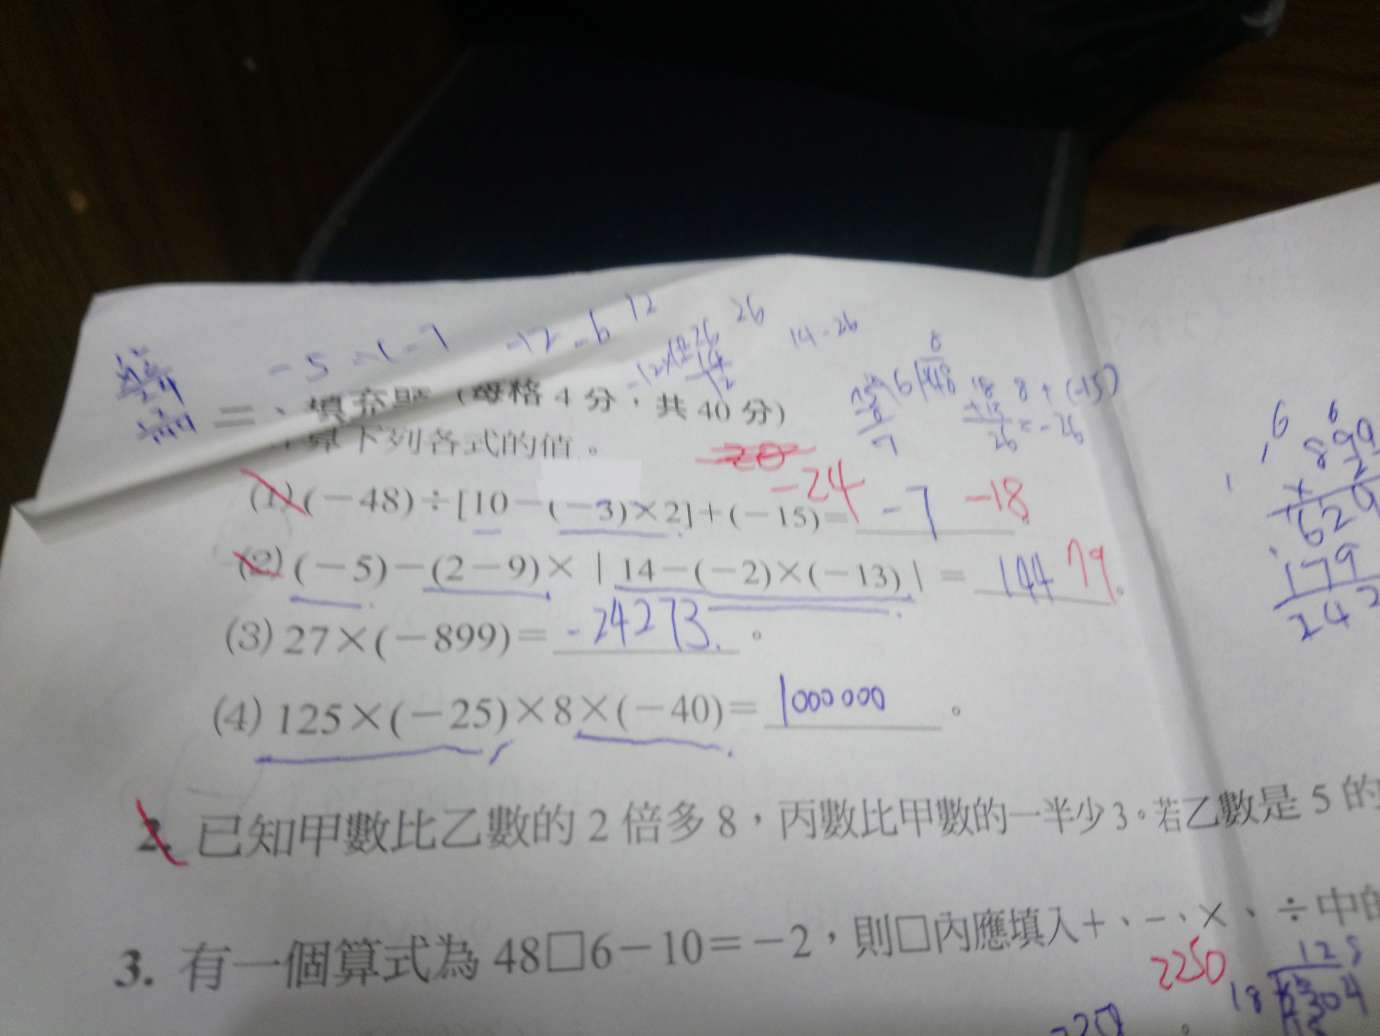 -12-6 12 26
14-26
6 48 8
8+(-15)
=-26
二、填充題(每格4分,共40分)
計算下列各式的值。
(1)(-48)÷[10-(-3)×2]+(-15)= -7 -24 -18
(2)(-5)-(2-9)×|14-(-2)×(-13)|= 144 79。
(3)27×(-899)= -24273。
(4)125×(-25)×8×(-40)= 1000000。
2. 已知甲數比乙數的2倍多8,丙數比甲數的一半少3。若乙數是5的
3. 有一個算式為48□6-10=-2,則□內應填入+、-、×、÷中的
2250
18 125